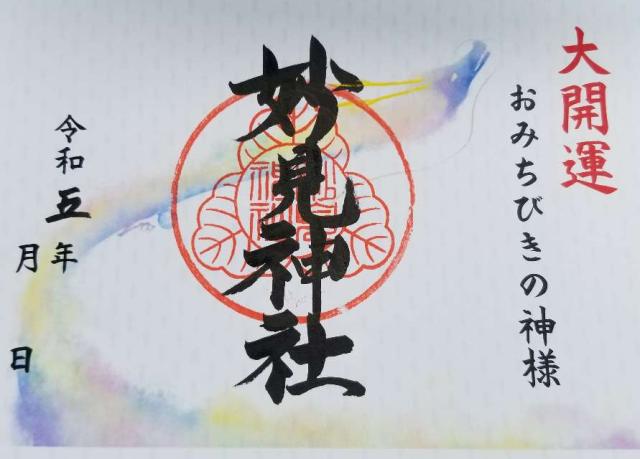 大開運
おみちびきの神様
妙見神社
令和五年
月
日